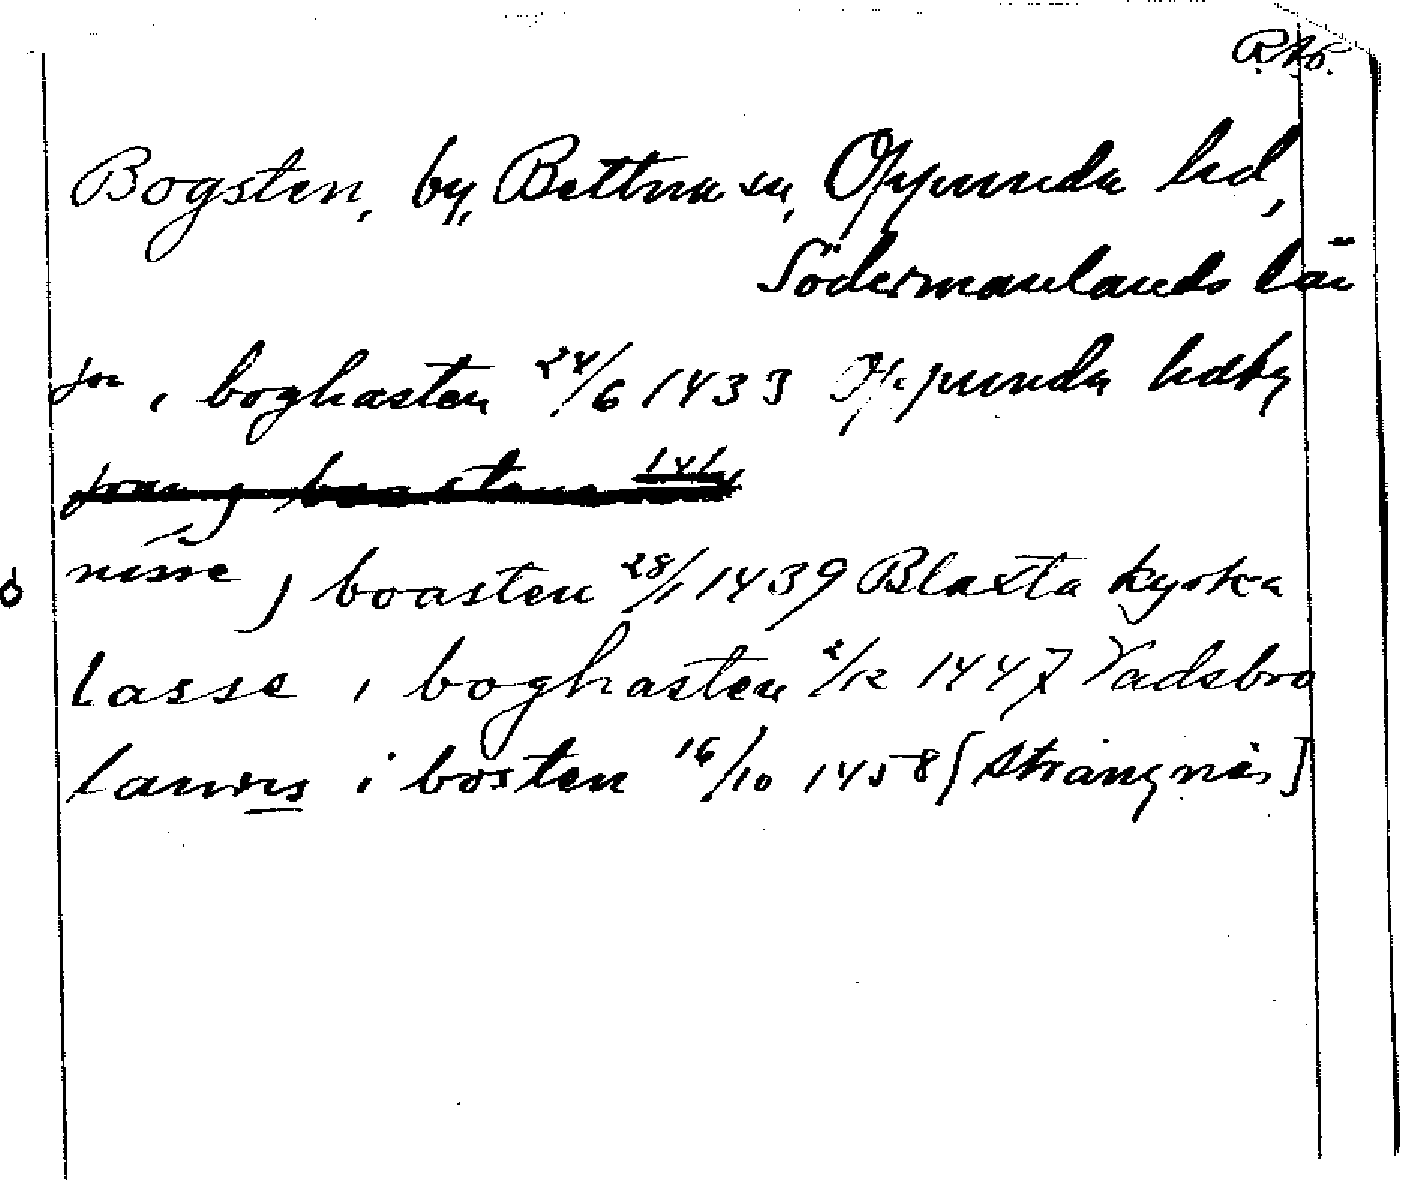 RAp.
Bogsten, by, Bettna sn, Oppunda hd,
Södermanlands län
jon i boghasten 24/6 1433 Oppunda hdtg
nisse j boasten 28/1 1439 Blaxta kyrka
lasse i boghasten 2/12 1447 Vadsbro
laurens i bosten 16/10 1458 [Strängnäs]